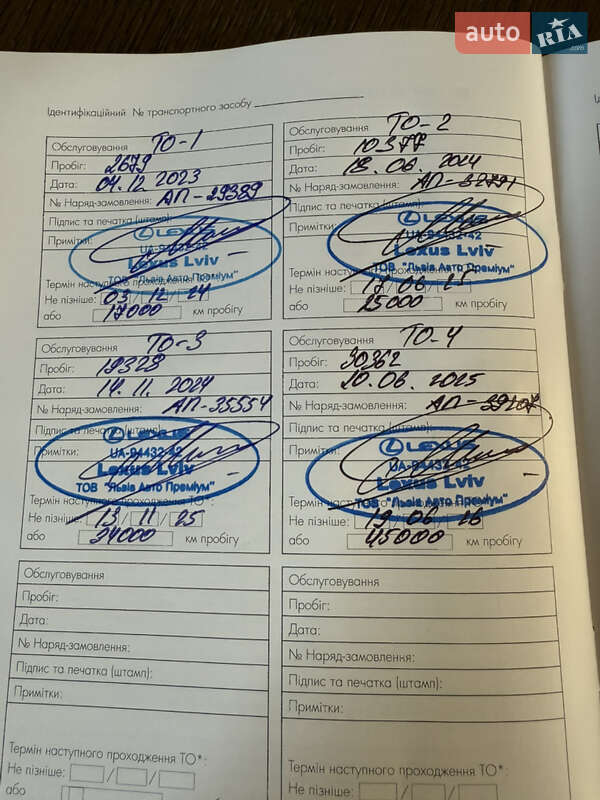 auto RIA.com
Ідентифікаційний № транспортного засобу
І
Обслуговування ТО-1
Пробіг: 2679
Дата: 04.12.2023
№ Наряд-замовлення: АП-29389
Підпис та печатка (штамп):
Примітки:
LEXUS
UA-94432-42
Lexus Lviv
ТОВ "Львів Авто Преміум"
Термін наступного проходження ТО*:
Не пізніше: 03/12/24
або 17000 км пробігу
Обслуговування ТО-2
Пробіг: 10377
Дата: 18.06.2024
№ Наряд-замовлення: АП-32771
Підпис та печатка (штамп):
Примітки:
LEXUS
UA-94432-42
Lexus Lviv
ТОВ "Львів Авто Преміум"
Термін наступного проходження
Не пізніше: 17/06/25
або 25000 км пробігу
Обслуговування ТО-3
Пробіг: 19329
Дата: 14.11.2024
№ Наряд-замовлення: АП-35554
Підпис та печатка (штамп):
Примітки:
LEXUS
UA-94432-42
Lexus Lviv
ТОВ "Львів Авто Преміум"
Термін наступного проходження ТО*:
Не пізніше: 13/11/25
або 34000 км пробігу
Обслуговування ТО-4
Пробіг: 30362
Дата: 20.06.2025
№ Наряд-замовлення: АП-39207
Підпис та печатка (штамп):
Примітки:
LEXUS
UA-94432-42
Lexus Lviv
ТОВ "Львів Авто Преміум"
Термін наступного
Не пізніше: 19/06/26
або 45000 км пробігу
Обслуговування
Пробіг:
Дата:
№ Наряд-замовлення:
Підпис та печатка (штамп):
Примітки:
Термін наступного проходження ТО*:
Не пізніше: / /
або
Обслуговування
Пробіг:
Дата:
№ Наряд-замовлення:
Підпис та печатка (штамп):
Примітки:
Термін наступного проходження ТО*:
Не пізніше: / /
або км пробігу